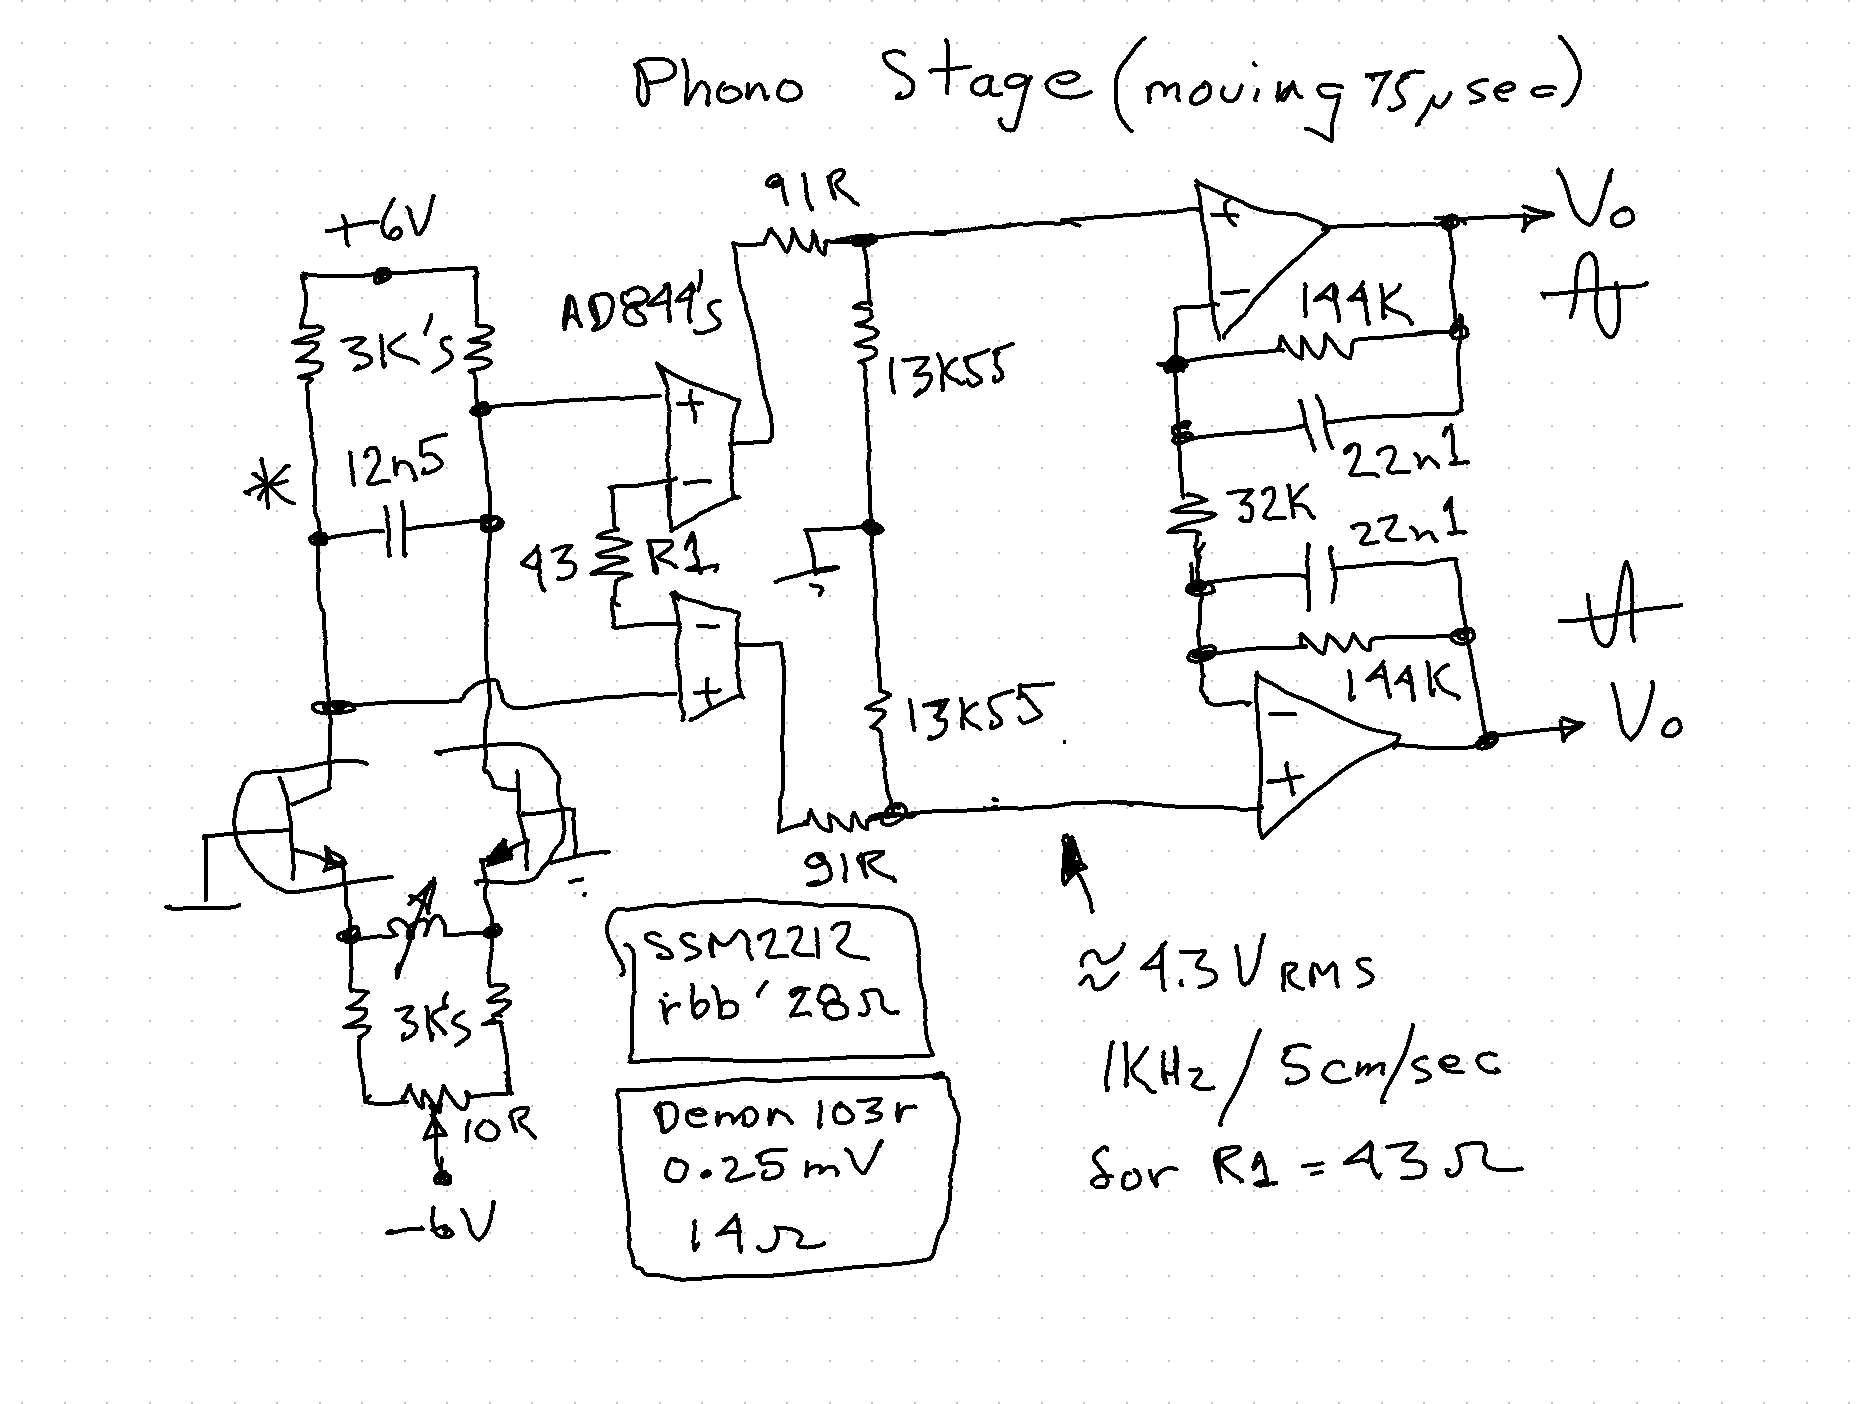 Phono Stage (moving 75μsec)
91R
Vo
+6V
AD844's
144K
3K's
13K55
+
-
+
-
* 12n5
22n1
32K
22n1
43 R1
-
+
144K
-
+
13K55
Vo
91R
SSM2212
rbb' 28Ω
≈ 4.3 VRMS
3K's
1KHz / 5cm/sec
10R
Denon 103r
0.25mV
for R1 = 43Ω
-6V
14Ω